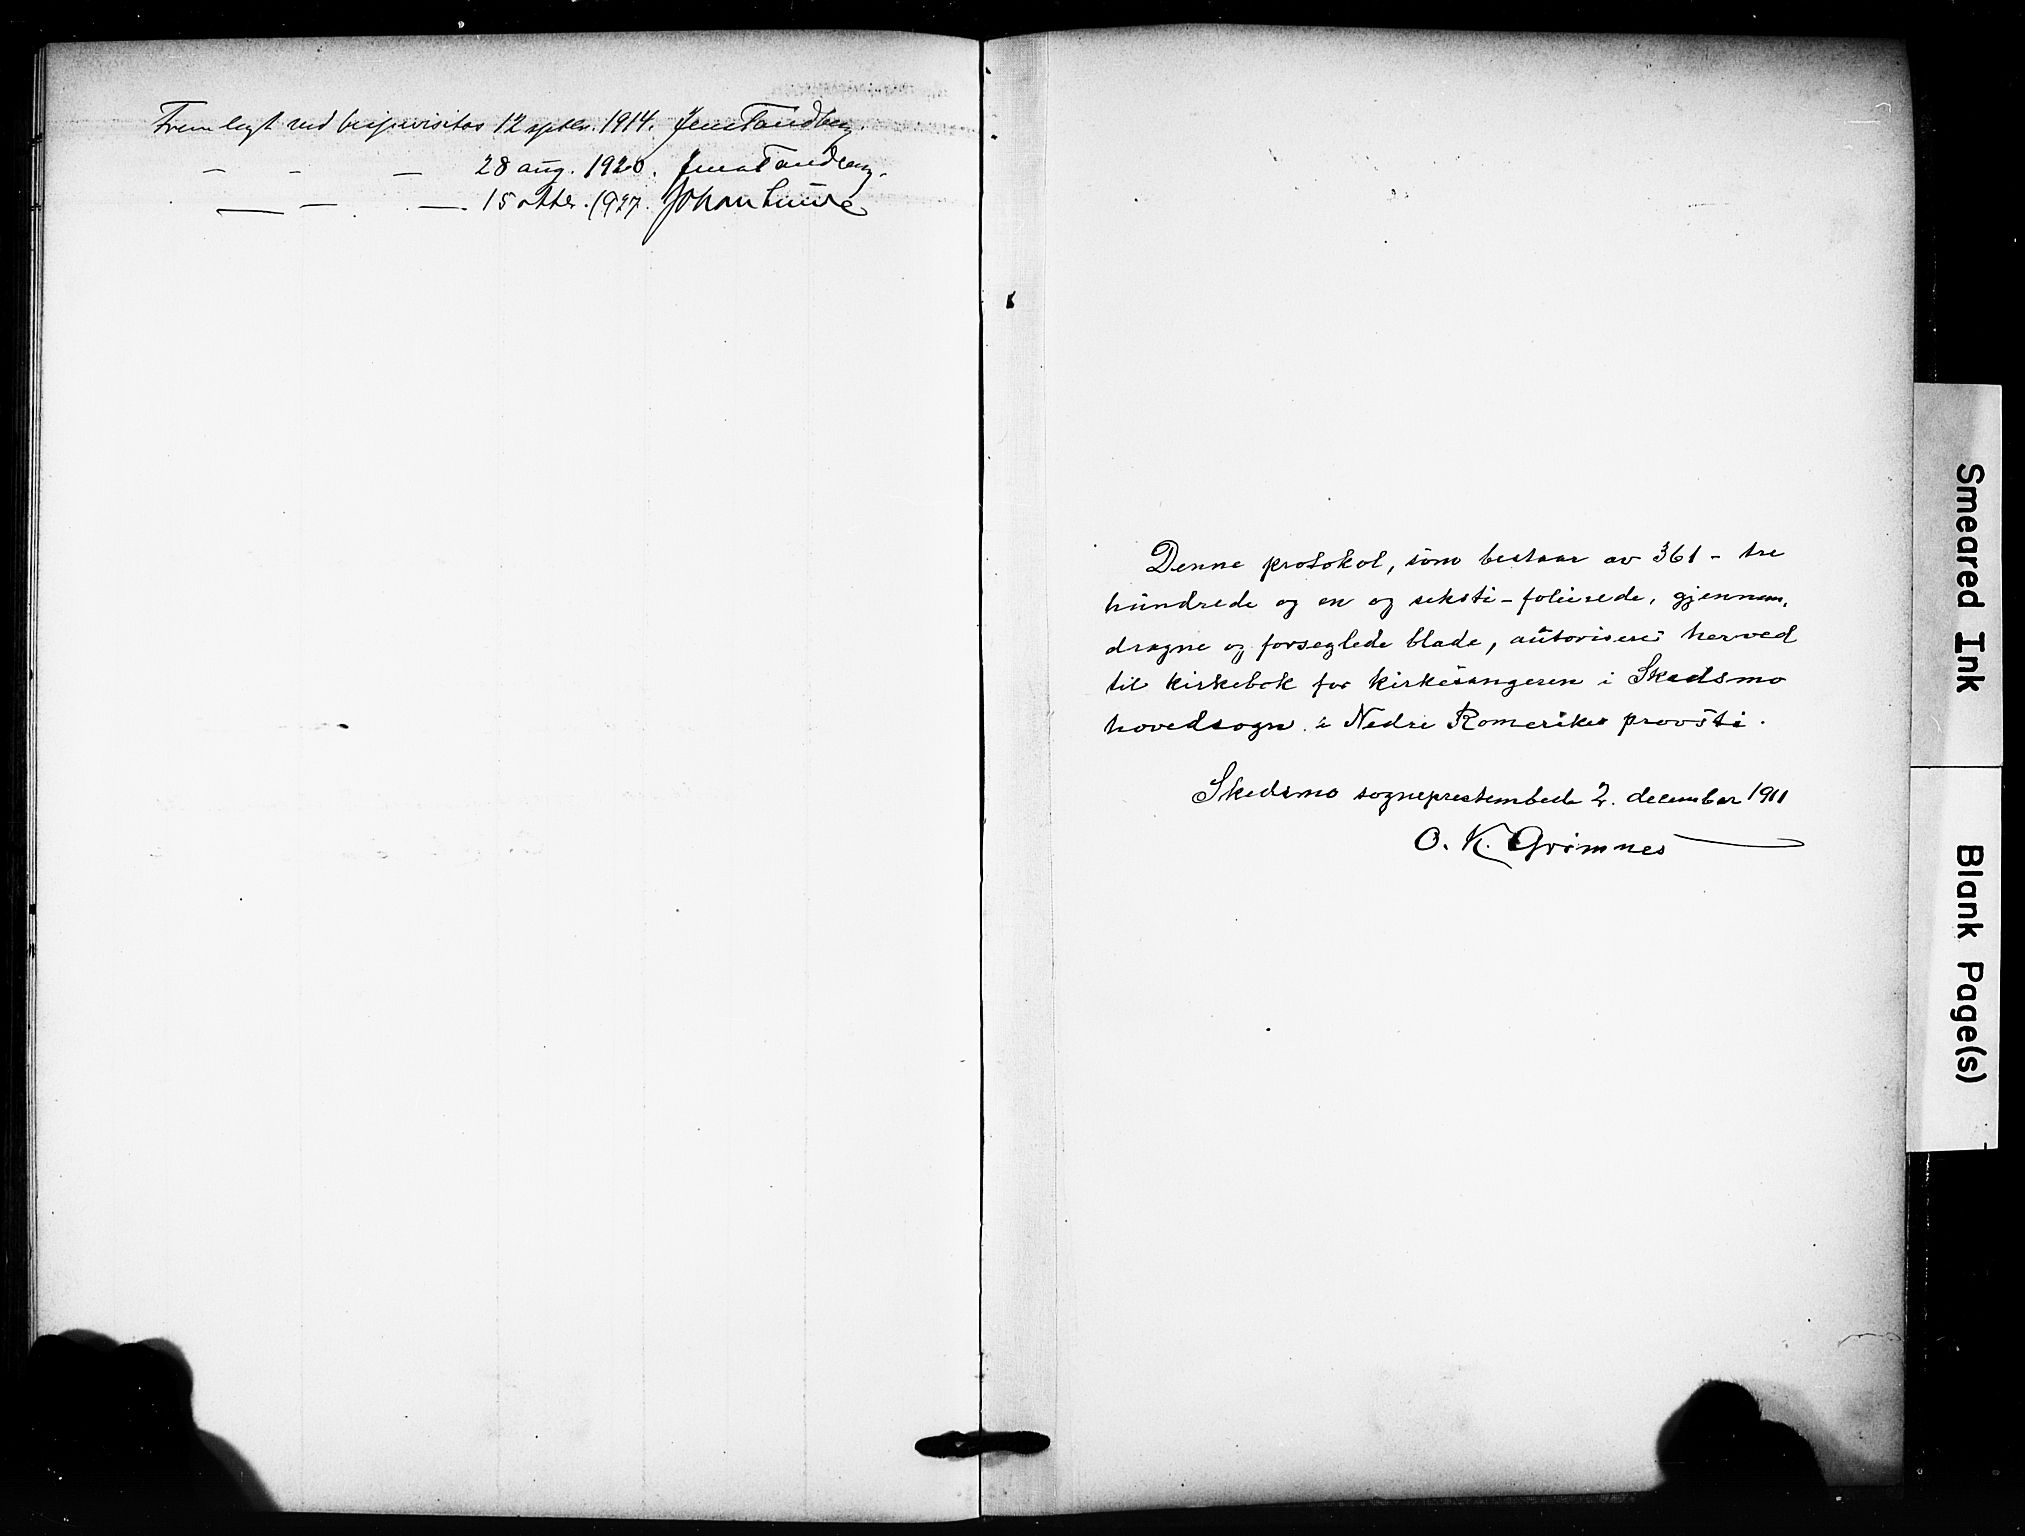 Fremlagt ved bispevisitas 12 septbr. 1914. Jens Tandberg.
— — — 28 aug. 1920. Jens Tandberg.
— — — 15 oktbr. 1927. Johan Lunde
Denne protokol, som bestaar av 361 - tre
hundrede og en og seksti - folierede, gjennem-
dragne og forseglede blade, autoriseres herved
til kirkebok for kirkesangeren i Skedsmo
hovedsogn i Nedre Romerikes provsti.
Skedsmo sogneprestembede 2. december 1911
O. K. Grimnes
Smeared Ink
Blank Page(s)